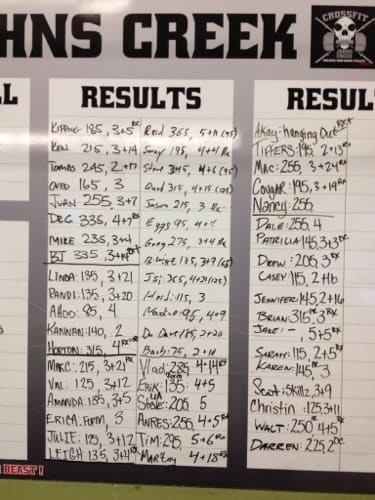 HNS CREEK
CROSSFIT
RESULTS
KIPPING 185, 3+5 RX
KEN 215, 3+14
TOMAS 245, 2+17
OTTO 165, 3
JUAN 255, 3+7
DEG 335, 4+7 RX
MIKE 235, 3+4
BJ 335, 3+14 RX+
LINDA: 135, 3+21
RANDI: 135, 3+20
85, 4
KANNAN: 140, 2
HORTON: 315, 4
MARC: 215, 3+21 RX
VAL: 125, 3+12
AMANDA: 185, 3+5
ERICA: FORM, 3
JULIE: 125, 3+12
LEIGH: 135, 3+4 RX
Reid 365, 5+11 (75)
195, 4+4 RX
Steve 345, 4+6 (95)
315, 4+15
Jason 215, 3
Eggs 95, 4+
Greg 275, 3+4 RX
185, 3+9 (65)
365, 4+21
115, 3
95, 4+9
185, 2+20
Barb: 75, 2+10
Vlad: 285, 4+14 RX
Erik: 135, 4+5
Steve: 205, 5
ANDRES: 256, 4+5 RX
TIM: 295, 5+6 RX
4+18 RX
RESUL
Akay: hanging Out RX+
TIFFERS: 195, 2+13 RX
MAC: 255, 3+24 RX
COUGAR: 195, 3+19 RX
Nancy: 255
DALE: 255, 4
PATRICIA: 145, 3+3
DREW: 205, 3
CASEY: 115, 2+16
JENNIFER: 145, 2+16
BRIAN: 315, 3 RX
JAKE: -, 5+5 RX
SARAH: 115, 2+5 RX
KAREN: 145, 3
Scott: Skillz, 3+9
Christin: 125, 3+11
WALT: 250, 4+5 RX
DARREN: 225, 2
BEAST!